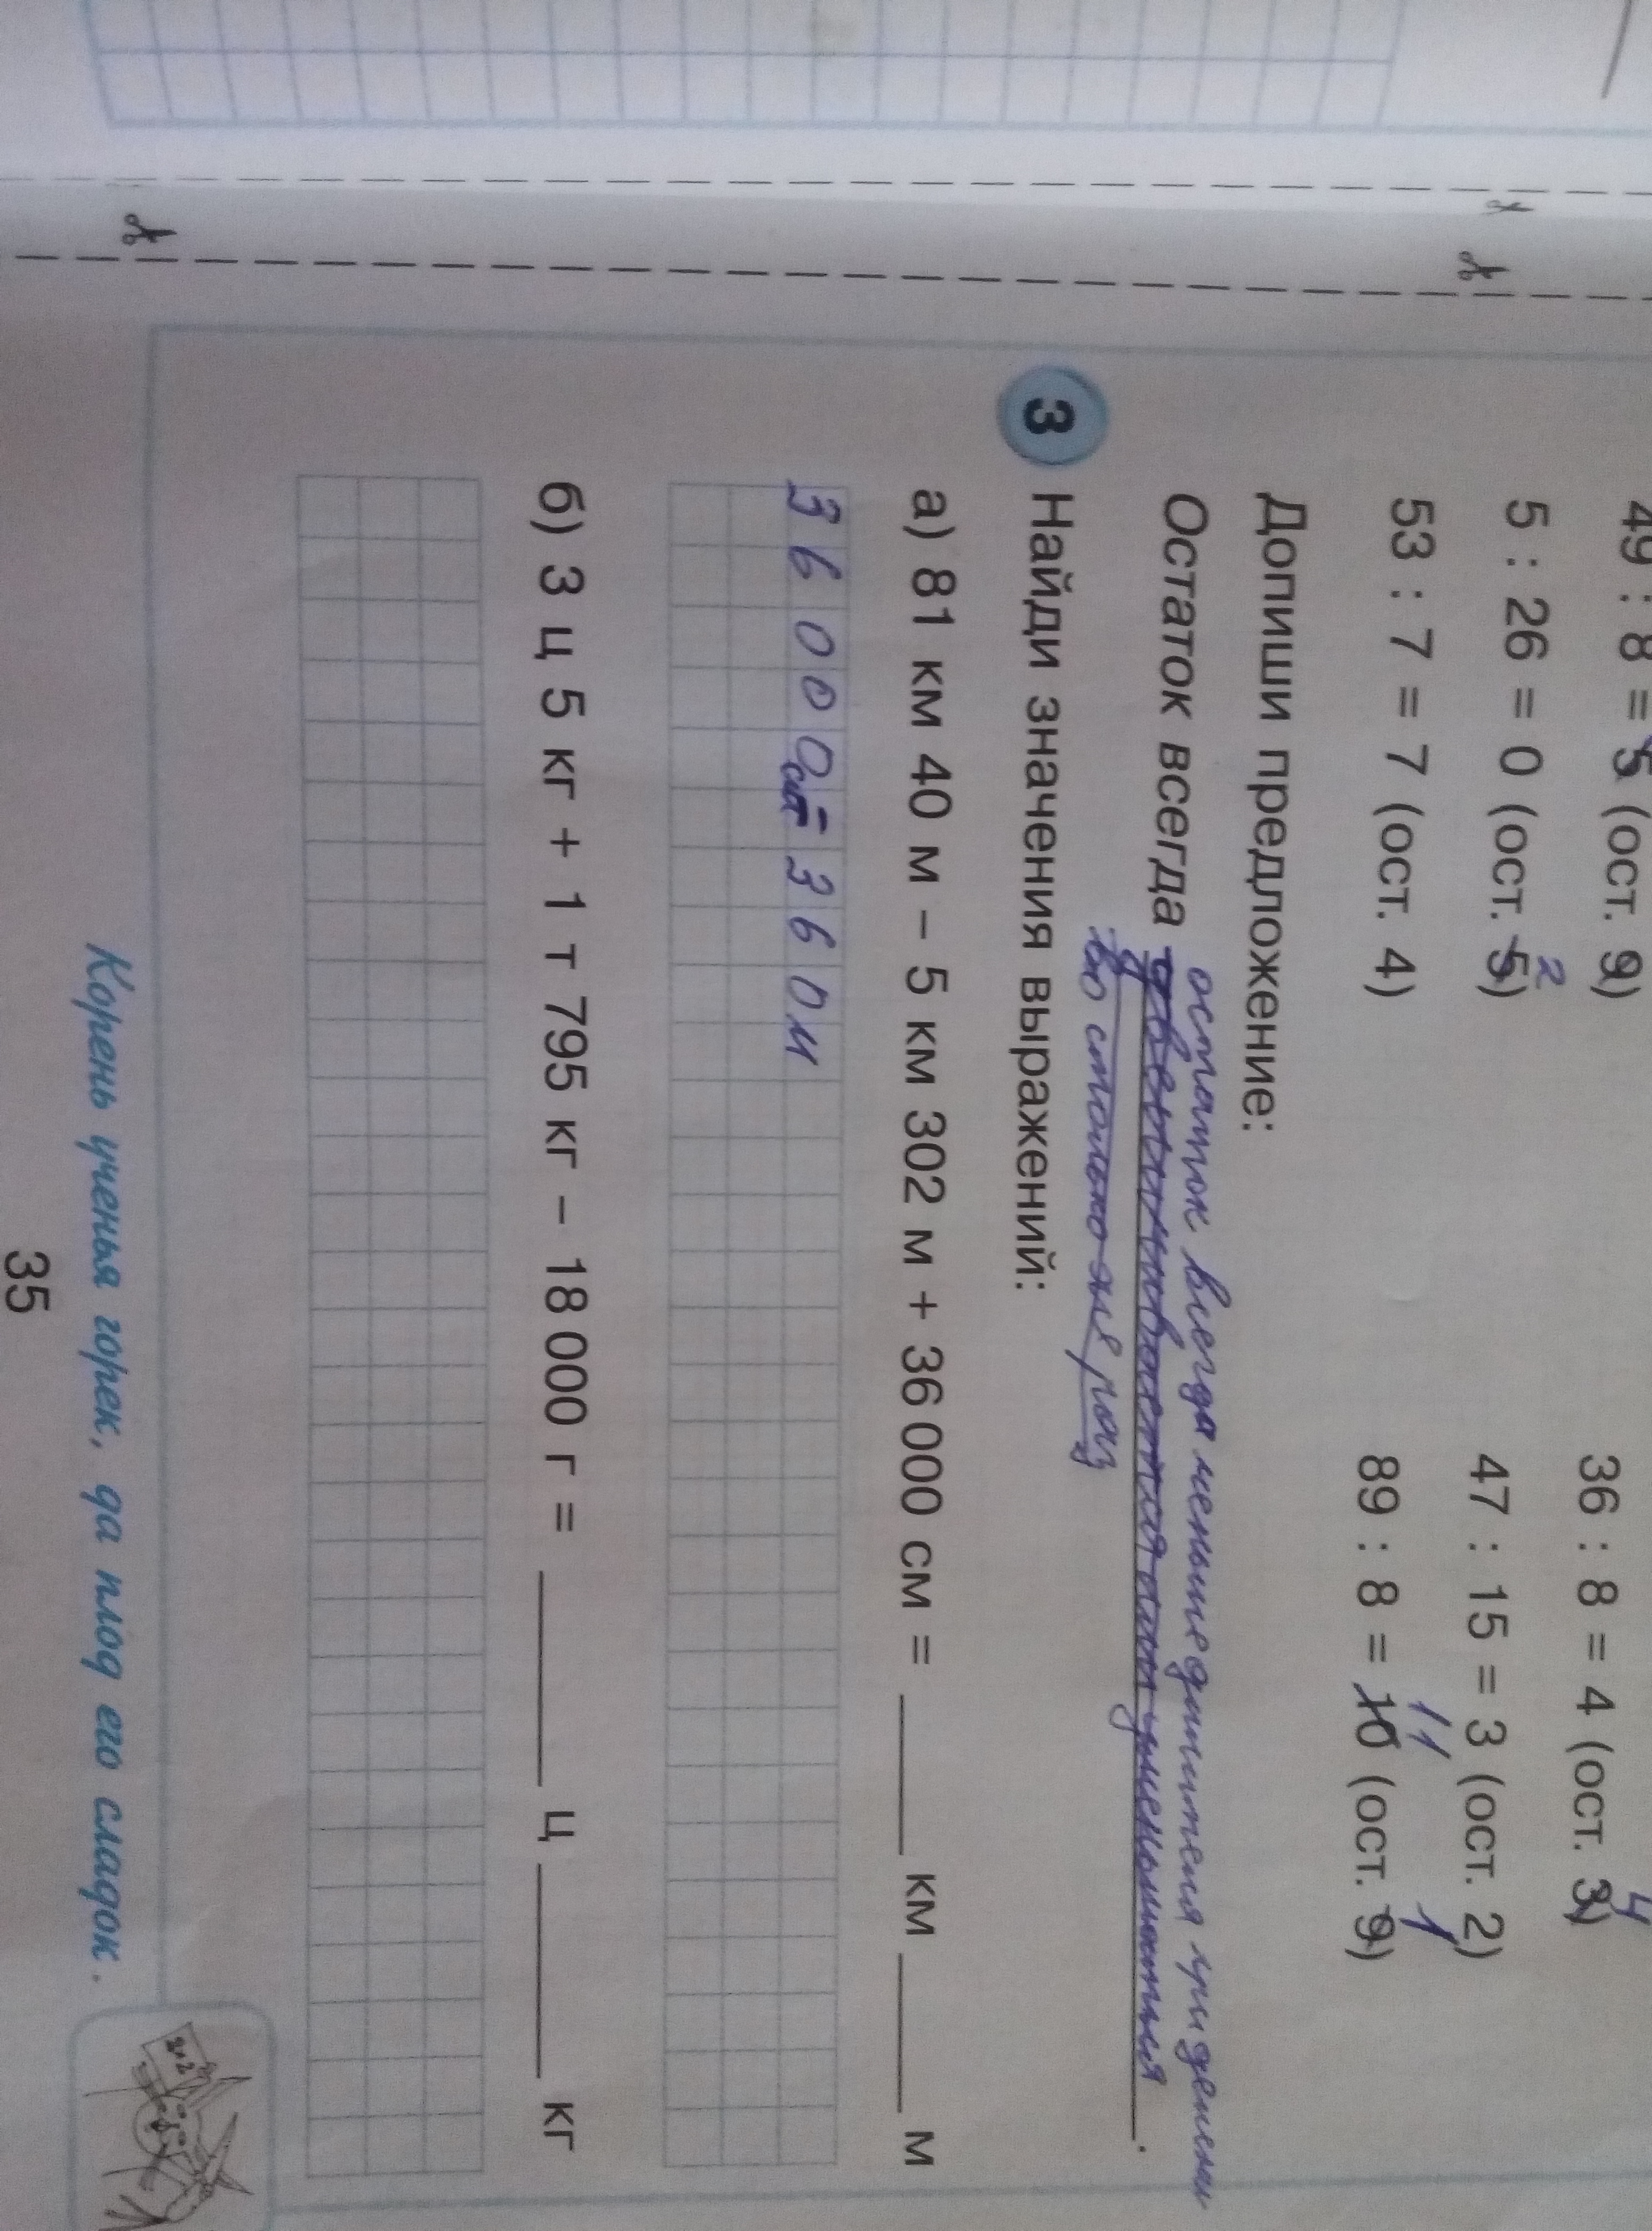 49 : 8 = 5 (ост. 9)
36 : 8 = 4 (ост. 3) 4
5 : 26 = 0 (ост. 5) 2
47 : 15 = 3 (ост. 2)
53 : 7 = 7 (ост. 4)
89 : 8 = 10 (ост. 9) 11 1
Допиши предложение:
остаток всегда меньше делителя при делении
Остаток всегда
3 Найди значения выражений:
а) 81 км 40 м – 5 км 302 м + 36 000 см = км м
36000см = 360м
б) 3 ц 5 кг + 1 т 795 кг – 18 000 г = ц кг
Корень ученья горек, да плод его сладок.
2×2
35